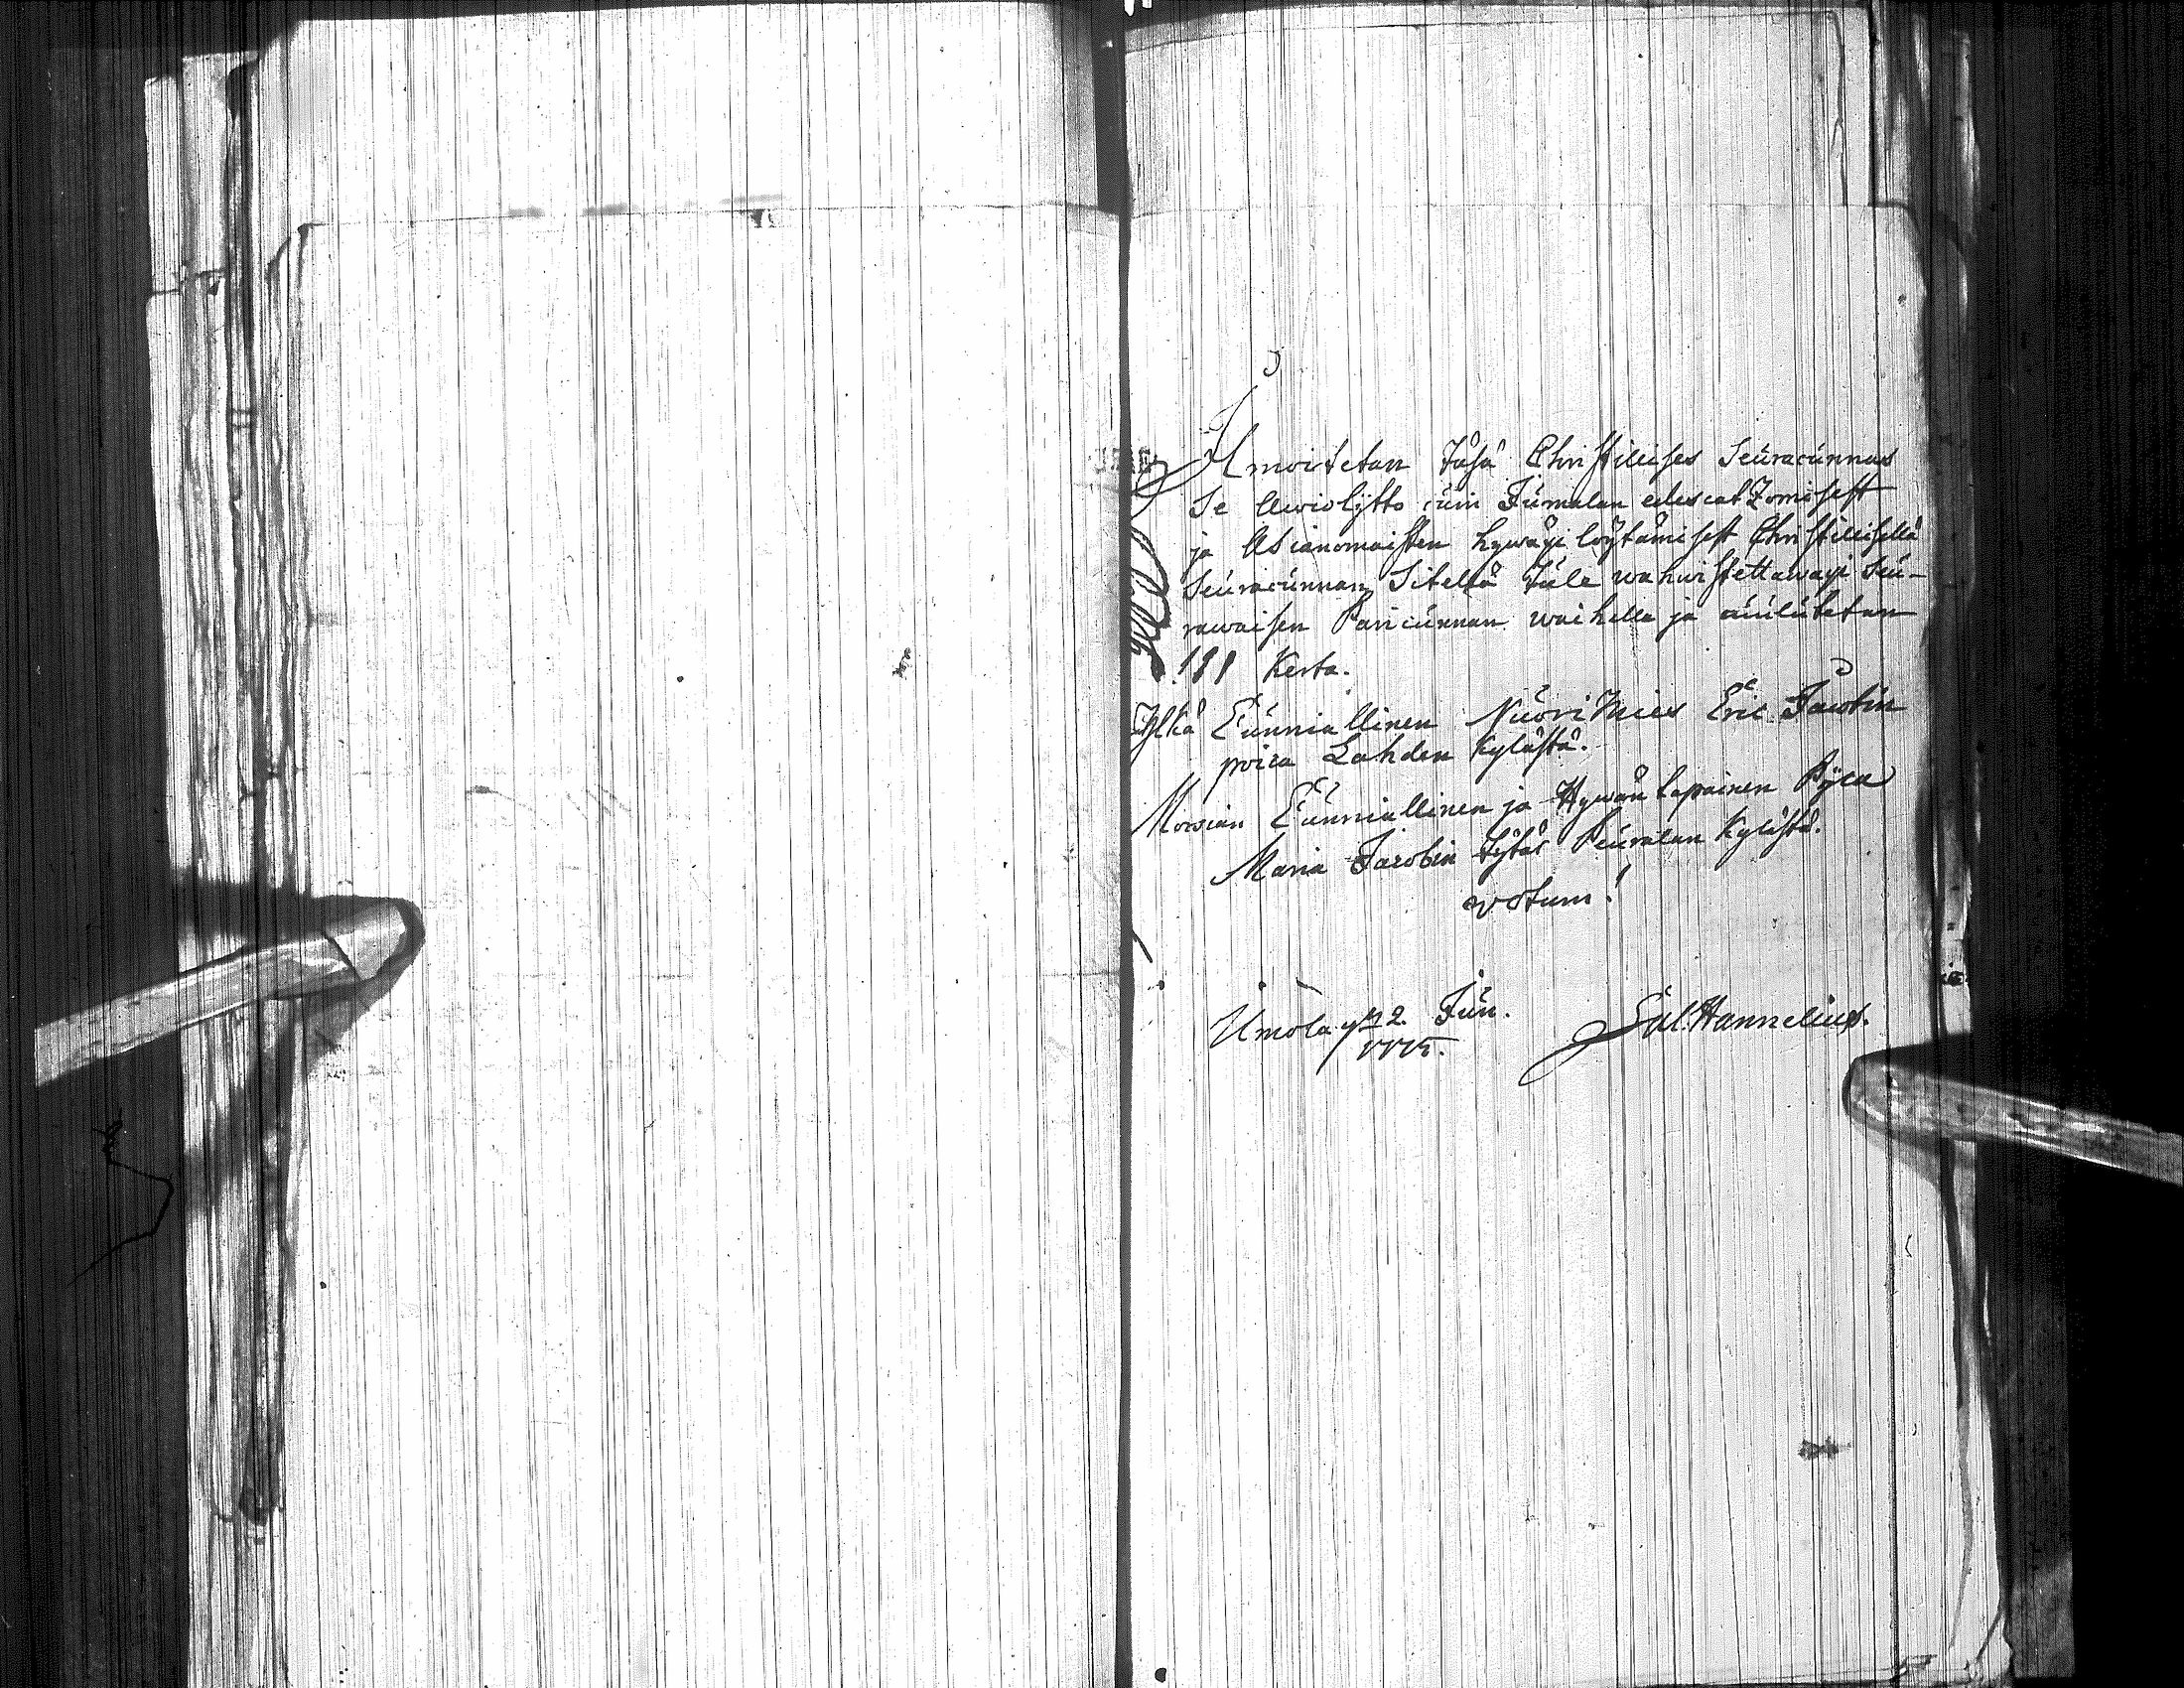 Ilmoitetan täsä Christilises Seuracunnas
Se Awiolijtto cuin Jumalan edescatzomisest
ja Asianomaisten hywäxi löytämisest Christillisellä
Seuracunnan Sitellä tule wahwistettawaxi Seu-
rawaisen Paricunnan waihella ja cuulutetan
1 Kerta.
Ylkä Cunniallinen Nuori Mies Eric Jacobin
poica Lahden Kylästä.
Morsian Cunniallinen ja Hywän tapainen Pijca
Maria Jacobin tytär Peuralan Kylästä.
votum!
Umola 2. Jun.
1775. Sal. Hannelius.